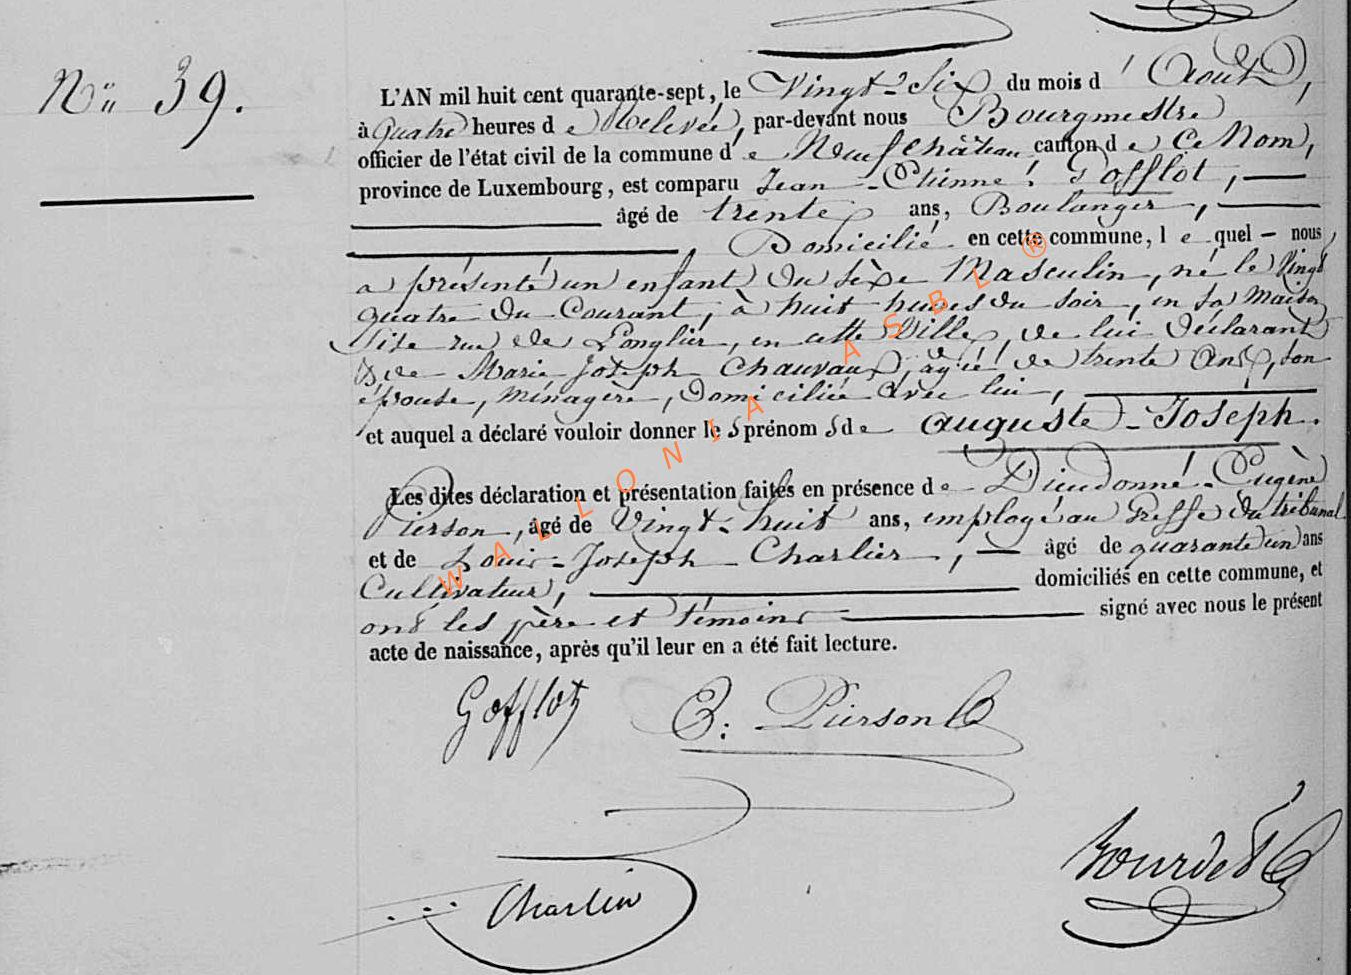 Nº 39.
L'AN mil huit cent quarante-sept, le Vingt-Six du mois d' Août,
à quatre heures de Relevée, par-devant nous Bourgmestre
officier de l'état civil de la commune de Neufchâteau canton de Ce Nom,
province de Luxembourg, est comparu Jean-Etienne Gofflot,
âgé de trente ans, Boulanger,
Domicilié en cette commune, lequel - nous
a présenté un enfant du sèxe Masculin, né le Vingt
quatre du Courant, à huit heures du Soir, en sa Maison
Sise rue de Longlier, en cette Ville, de lui déclarant
& de Marie Joseph Chauvaux, agée de trente Ans, son
épouse, ménagère, domiciliée avec lui,
et auquel a déclaré vouloir donner les prénoms de Auguste-Joseph.
Les dites déclaration et présentation faites en présence de Dieudonné-Eugène
Pierson, âgé de Vingt-huit ans, employé au Greffe du tribunal
et de Louis-Joseph Charlier, âgé de quarante un ans
Cultivateur, domiciliés en cette commune, et
ont les père et témoins signé avec nous le présent
acte de naissance, après qu'il leur en a été fait lecture.
Gofflot E. Pierson
Charlier
WALLONIA ASBL ®